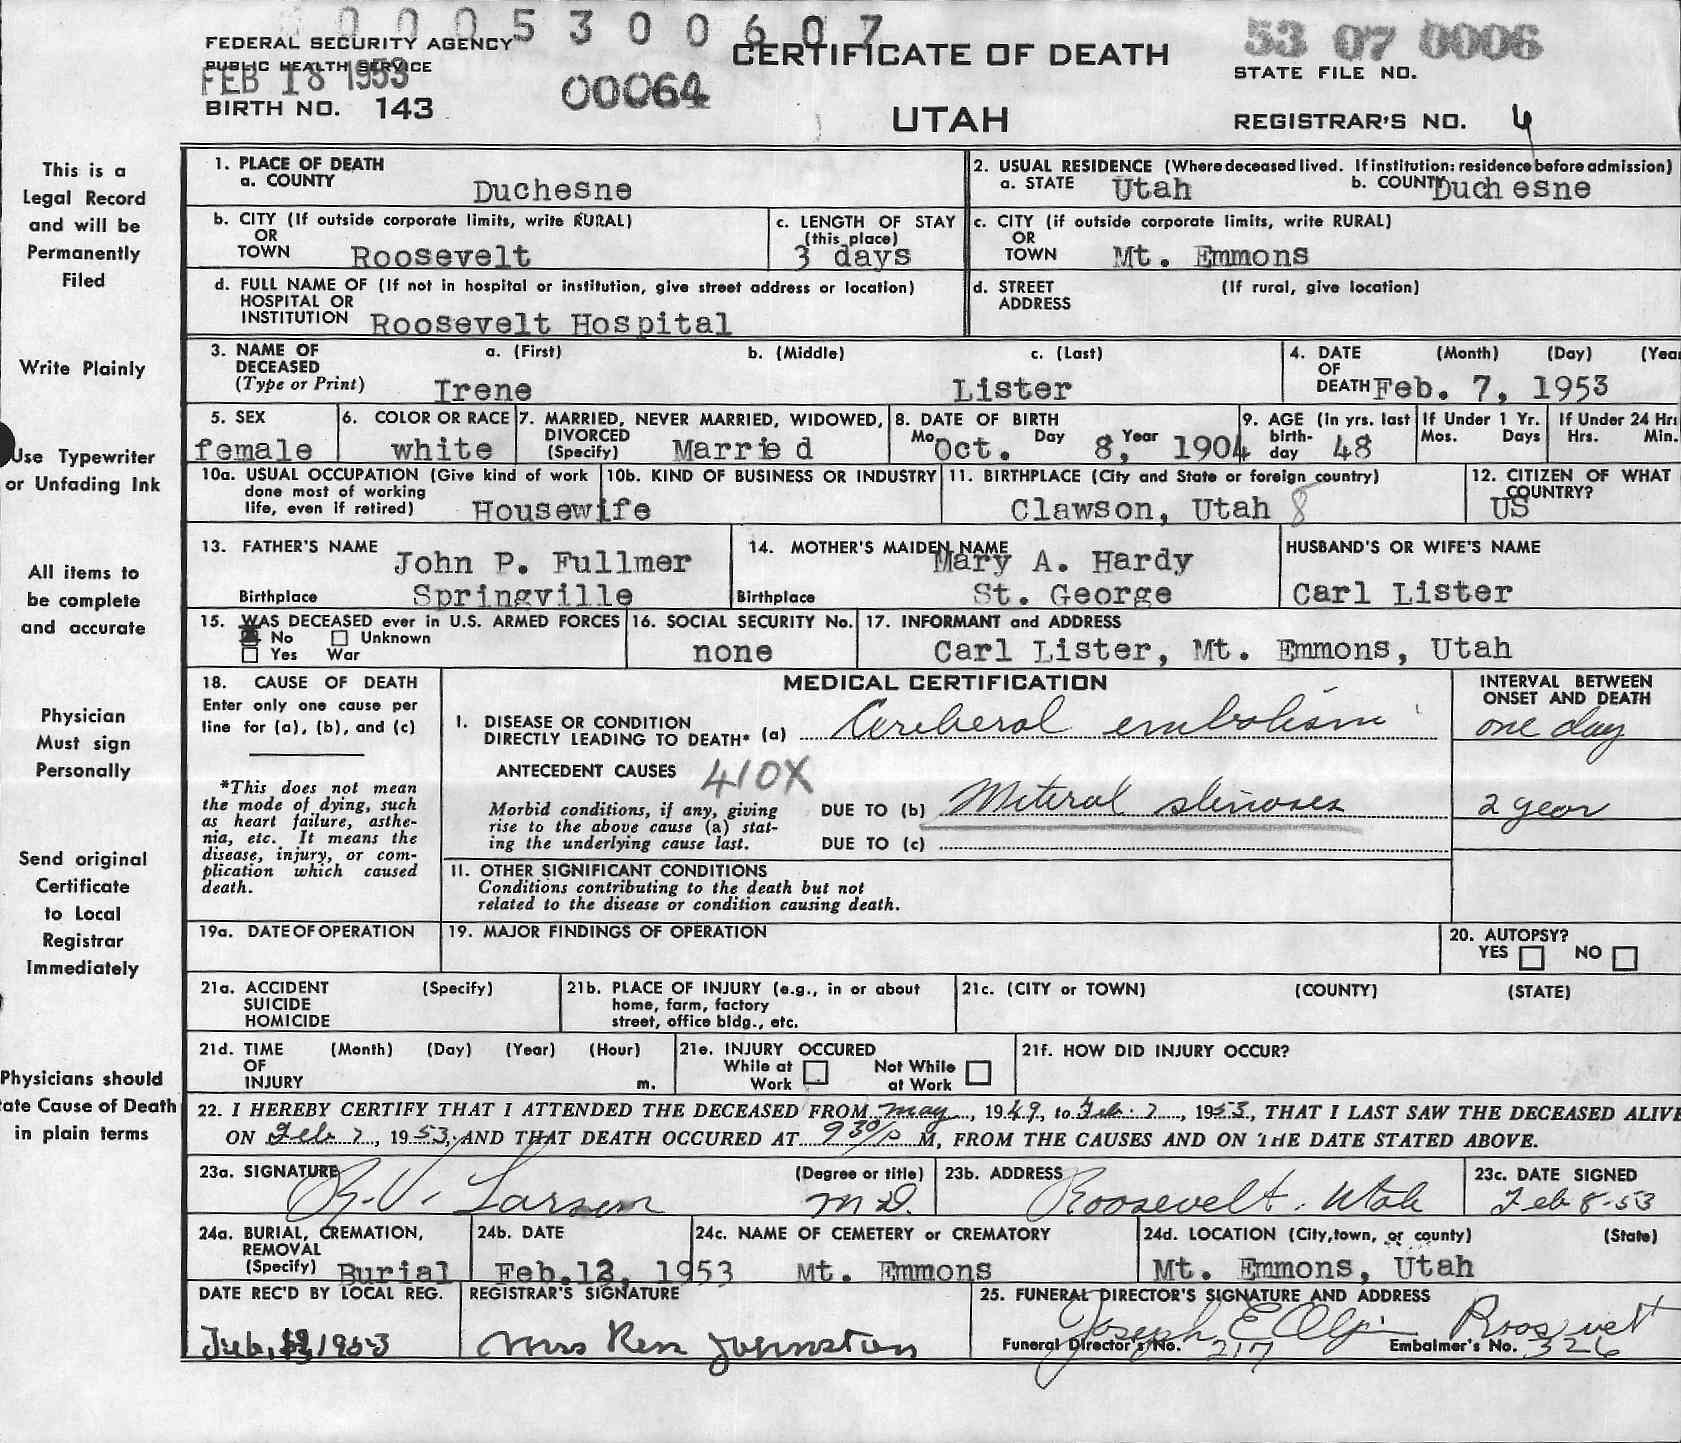 0005300607
FEDERAL SECURITY AGENCY
PUBLIC HEALTH SERVICE
FEB 18 1953
BIRTH NO. 143
00064
CERTIFICATE OF DEATH
UTAH
53 07 0006
STATE FILE NO.
REGISTRAR'S NO. 4
This is a
Legal Record
and will be
Permanently
Filed
Write Plainly
Use Typewriter
or Unfading Ink
All items to
be complete
and accurate
Physician
Must sign
Personally
Send original
Certificate
to Local
Registrar
Immediately
Physicians should
ate Cause of Death
in plain terms
1. PLACE OF DEATH
a. COUNTY Duchesne
2. USUAL RESIDENCE (Where deceased lived. If institution: residence before admission)
a. STATE Utah b. COUNTY Duchesne
b. CITY (If outside corporate limits, write RURAL)
OR
TOWN Roosevelt
c. LENGTH OF STAY
(this place)
3 days
c. CITY (if outside corporate limits, write RURAL)
OR
TOWN Mt. Emmons
d. FULL NAME OF (If not in hospital or institution, give street address or location)
HOSPITAL OR
INSTITUTION Roosevelt Hospital
d. STREET (If rural, give location)
ADDRESS
3. NAME OF a. (First) b. (Middle) c. (Last)
DECEASED
(Type or Print) Irene Lister
4. DATE (Month) (Day) (Yea
OF
DEATH Feb. 7, 1953
5. SEX
female
6. COLOR OR RACE
white
7. MARRIED, NEVER MARRIED, WIDOWED,
DIVORCED
(Specify) Married
8. DATE OF BIRTH
Mo. Day Year
Oct. 8, 1904
9. AGE (In yrs. last
birth-
day 48
If Under 1 Yr.
Mos. Days
If Under 24 Hrs
Hrs. Min.
10a. USUAL OCCUPATION (Give kind of work
done most of working
life, even if retired) Housewife
10b. KIND OF BUSINESS OR INDUSTRY
11. BIRTHPLACE (City and State or foreign country)
Clawson, Utah 8
12. CITIZEN OF WHAT
COUNTRY?
US
13. FATHER'S NAME John P. Fullmer
Birthplace Springville
14. MOTHER'S MAIDEN NAME
Mary A. Hardy
Birthplace St. George
HUSBAND'S OR WIFE'S NAME
Carl Lister
15. WAS DECEASED ever in U.S. ARMED FORCES
No Unknown
Yes War
16. SOCIAL SECURITY No.
none
17. INFORMANT and ADDRESS
Carl Lister, Mt. Emmons, Utah
18. CAUSE OF DEATH
Enter only one cause per
line for (a), (b), and (c)
*This does not mean
the mode of dying, such
as heart failure, asthe-
nia, etc. It means the
disease, injury, or com-
plication which caused
death.
MEDICAL CERTIFICATION
INTERVAL BETWEEN
ONSET AND DEATH
I. DISEASE OR CONDITION
DIRECTLY LEADING TO DEATH* (a) Cereberal embolism one day
ANTECEDENT CAUSES 410X
Morbid conditions, if any, giving
rise to the above cause (a) stat-
ing the underlying cause last.
DUE TO (b) Miteral stenoses 2 year
DUE TO (c)
11. OTHER SIGNIFICANT CONDITIONS
Conditions contributing to the death but not
related to the disease or condition causing death.
19a. DATE OF OPERATION
19. MAJOR FINDINGS OF OPERATION
20. AUTOPSY?
YES NO
21a. ACCIDENT (Specify)
SUICIDE
HOMICIDE
21b. PLACE OF INJURY (e.g., in or about
home, farm, factory
street, office bldg., etc.
21c. (CITY or TOWN) (COUNTY) (STATE)
21d. TIME (Month) (Day) (Year) (Hour)
OF
INJURY m.
21e. INJURY OCCURED
While at Not While
Work at Work
21f. HOW DID INJURY OCCUR?
22. I HEREBY CERTIFY THAT I ATTENDED THE DECEASED FROM May, 1949, to Feb. 7, 1953, THAT I LAST SAW THE DECEASED ALIVE
ON Feb 7, 1953, AND THAT DEATH OCCURED AT 9 30 p M, FROM THE CAUSES AND ON THE DATE STATED ABOVE.
23a. SIGNATURE (Degree or title)
R.V. Larsen M D.
23b. ADDRESS
Roosevelt. Utah
23c. DATE SIGNED
Feb 8-53
24a. BURIAL, CREMATION,
REMOVAL
(Specify) Burial
24b. DATE
Feb.12, 1953
24c. NAME OF CEMETERY or CREMATORY
Mt. Emmons
24d. LOCATION (City, town, or county) (State)
Mt. Emmons, Utah
DATE REC'D BY LOCAL REG.
Feb, 1953
REGISTRAR'S SIGNATURE
Mrs Ken Johnston
25. FUNERAL DIRECTOR'S SIGNATURE AND ADDRESS
Joseph E Roosevelt
Funeral Director's No. 217 Embalmer's No. 326